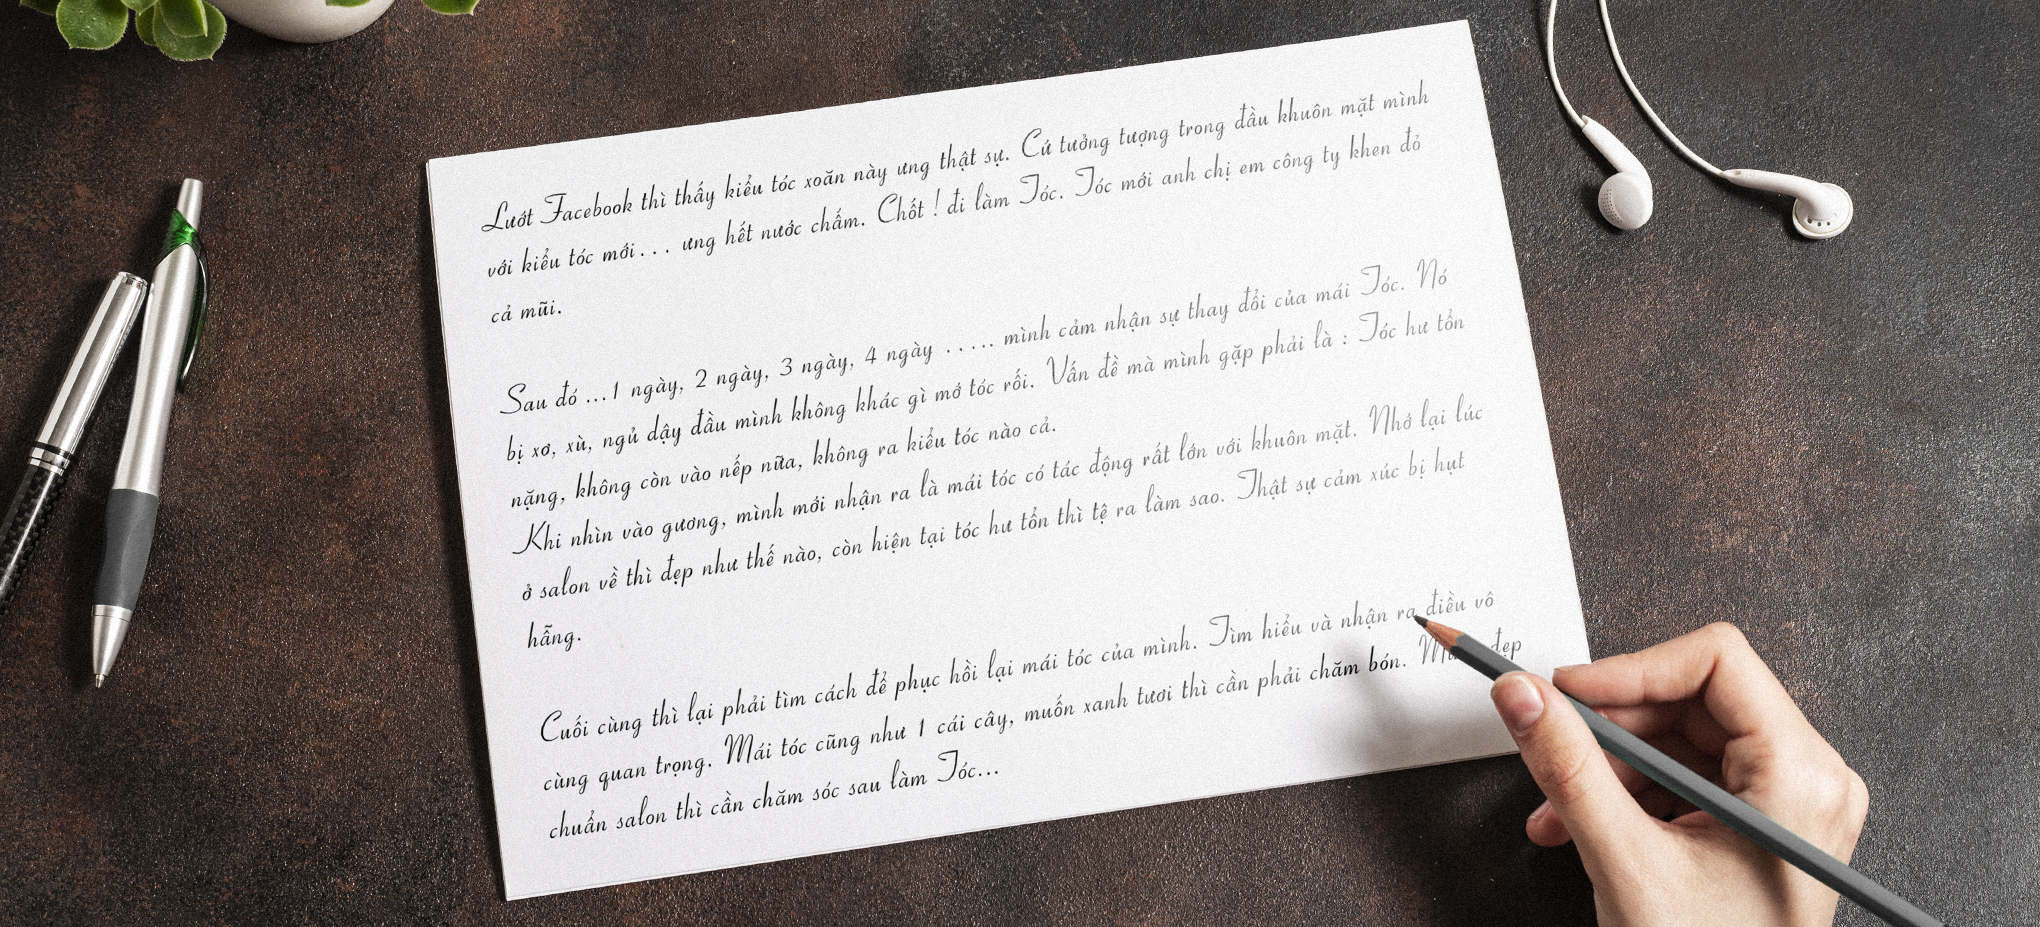 Lướt Facebook thì thấy kiểu tóc xoăn này ưng thật sự. Cứ tưởng tượng trong đầu khuôn mặt mình
với kiểu tóc mới... ưng hết nước chấm. Chốt ! đi làm Tóc. Tóc mới anh chị em công ty khen đỏ
cả mũi.
Sau đó ...1 ngày, 2 ngày, 3 ngày, 4 ngày ..... mình cảm nhận sự thay đổi của mái Tóc. Nó
bị xơ, xù, ngủ dậy đầu mình không khác gì mớ tóc rối. Vấn đề mà mình gặp phải là : Tóc hư tổn
nặng, không còn vào nếp nữa, không ra kiểu tóc nào cả.
Khi nhìn vào gương, mình mới nhận ra là mái tóc có tác động rất lớn với khuôn mặt. Nhớ lại lúc
ở salon về thì đẹp như thế nào, còn hiện tại tóc hư tổn thì tệ ra làm sao. Thật sự cảm xúc bị hụt
hẫng.
Cuối cùng thì lại phải tìm cách để phục hồi lại mái tóc của mình. Tìm hiểu và nhận ra điều vô
cùng quan trọng. Mái tóc cũng như 1 cái cây, muốn xanh tươi thì cần phải chăm bón. đẹp
chuẩn salon thì cần chăm sóc sau làm Tóc...